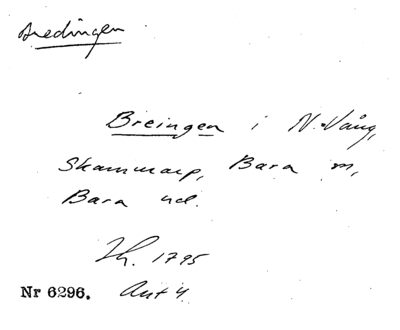 Bredingen
Breingen i N. Vång,
Skammarp, Bara sn,
Bara hd.
Ll. 1795
Nr 6296. Akt 4